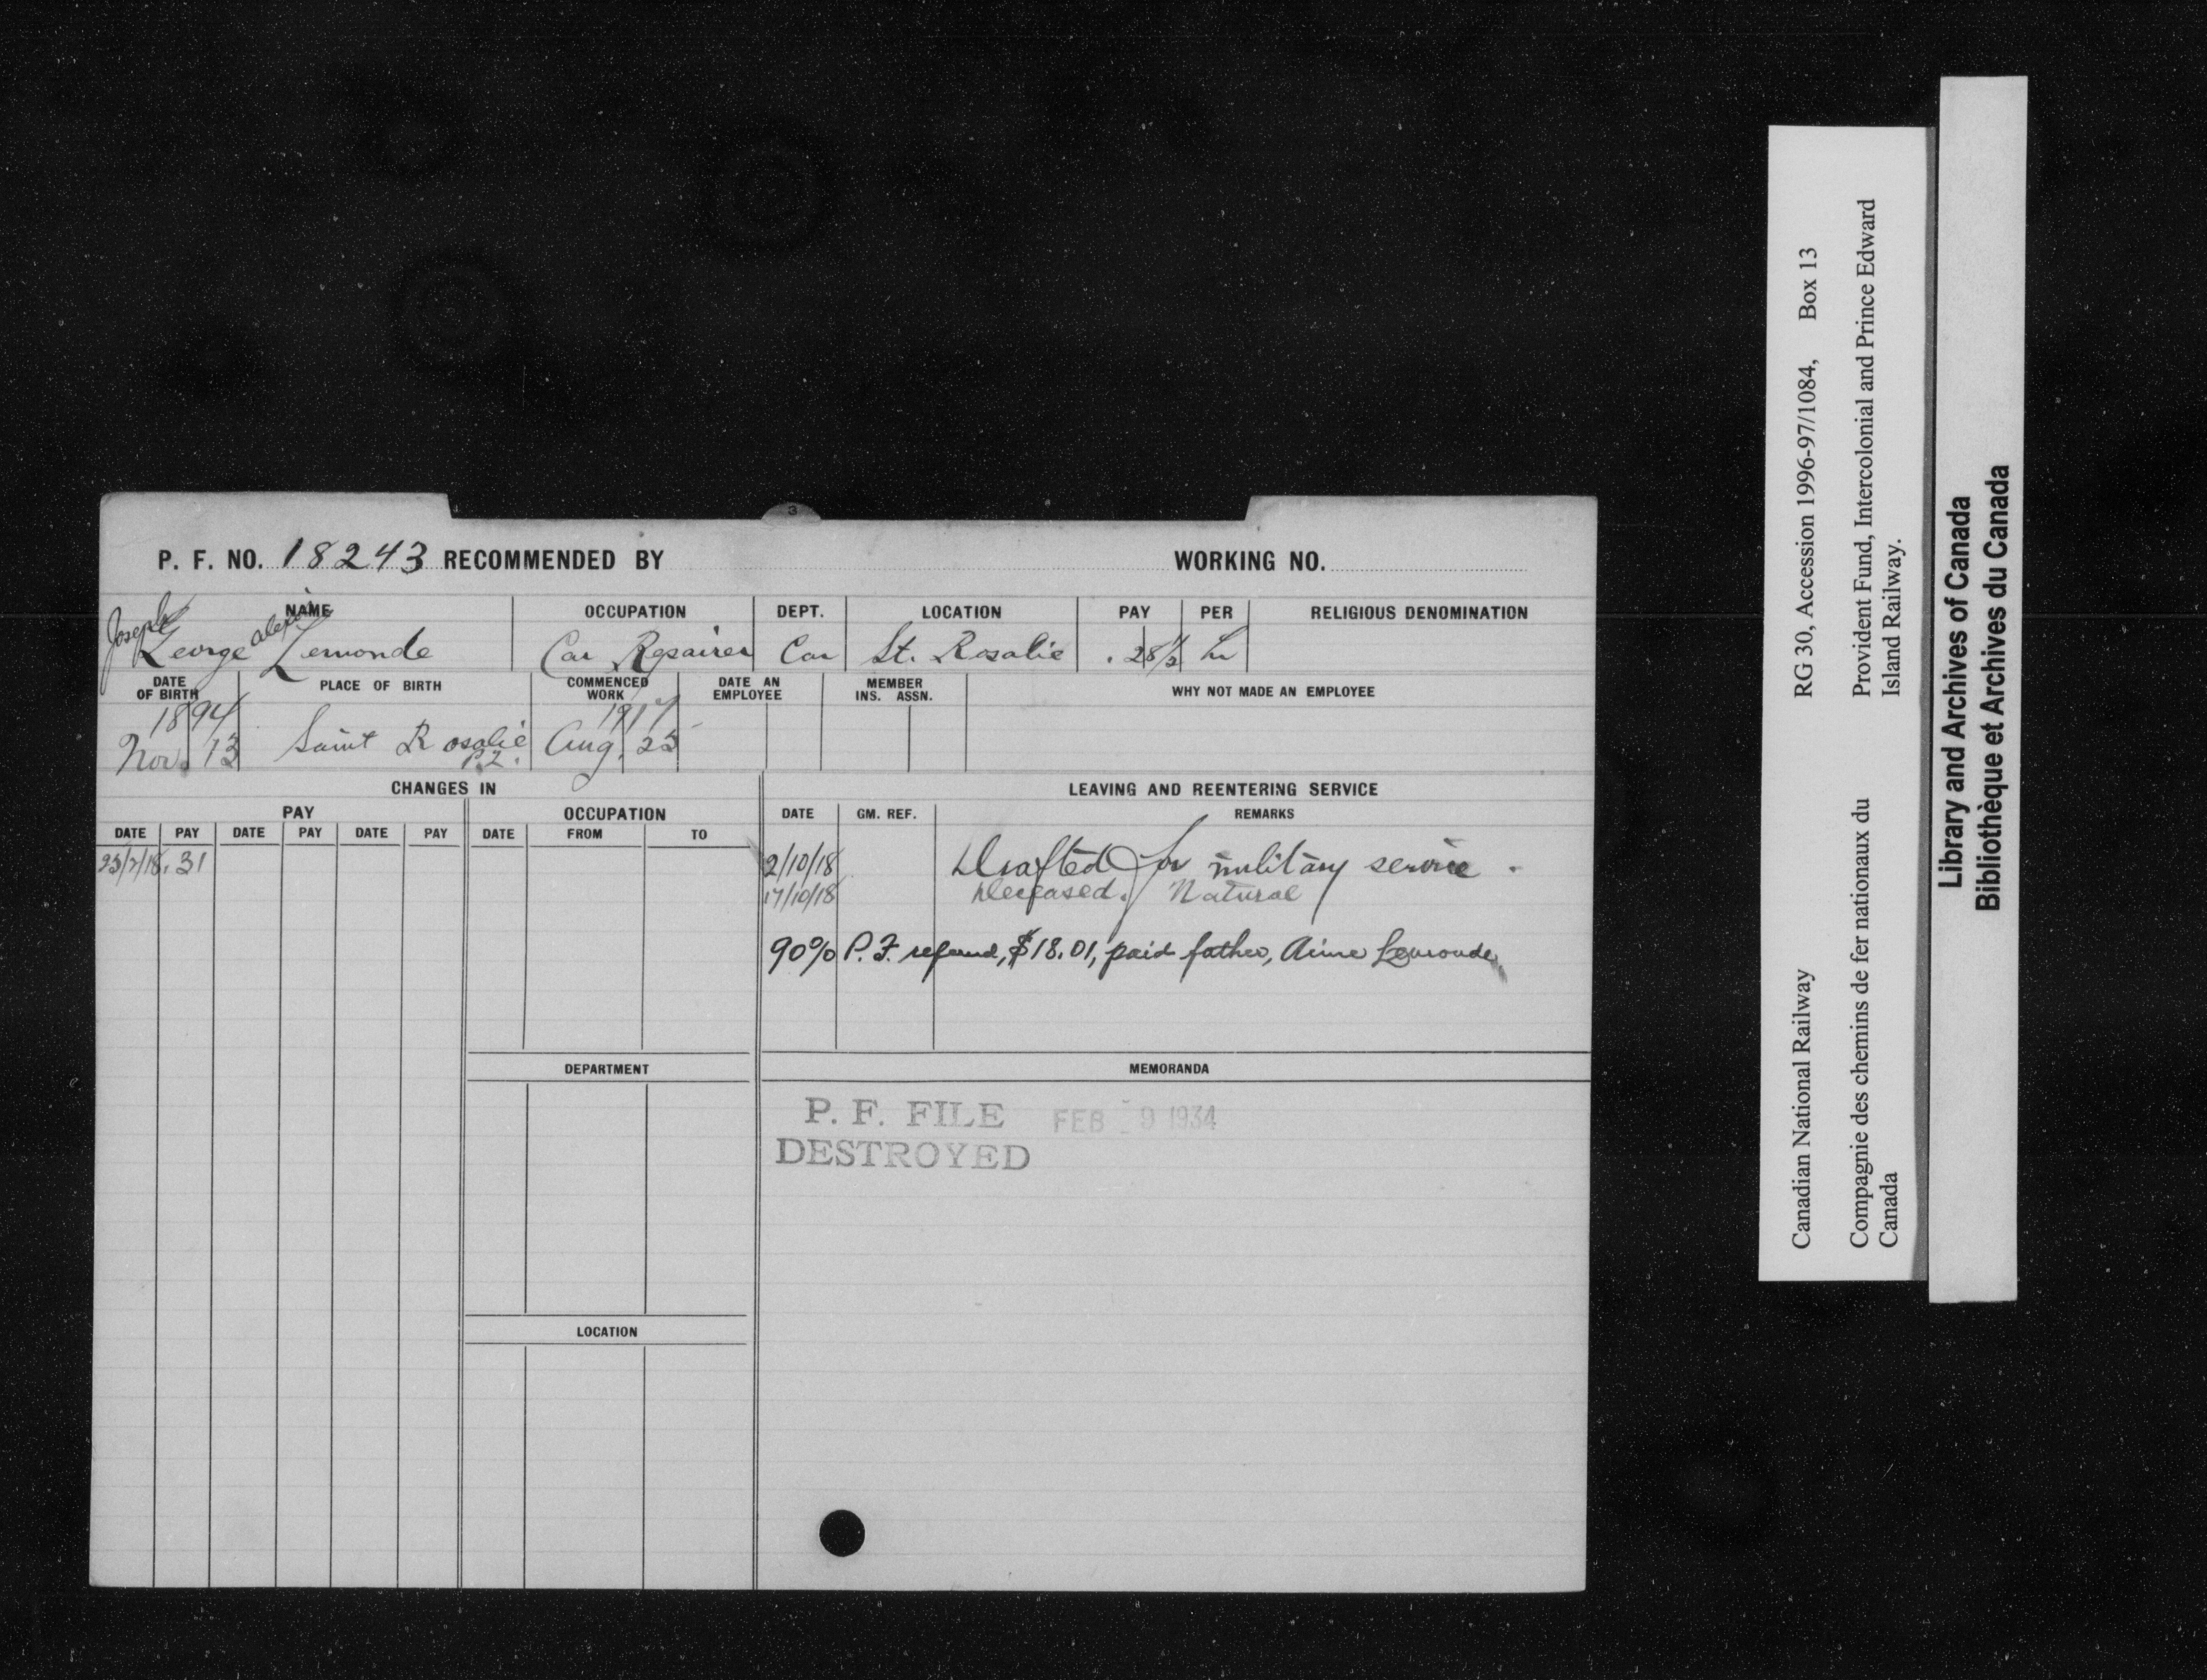 3
P. F. NO. 18243 RECOMMENDED BY WORKING NO.
NAME OCCUPATION DEPT. LOCATION PAY PER RELIGIOUS DENOMINATION
Joseph George Lemonde Car Repairer Car St. Rosalie .28½ hr
DATE OF BIRTH PLACE OF BIRTH COMMENCED WORK DATE AN EMPLOYEE MEMBER INS. ASSN. WHY NOT MADE AN EMPLOYEE
1894 1917
Nov. 13 Saint Rosalie Aug. 23
CHANGES IN LEAVING AND REENTERING SERVICE
PAY OCCUPATION DATE GM. REF. REMARKS
DATE PAY DATE PAY DATE PAY DATE FROM TO
.31 2/10/18 Drafted for military service.
17/10/18 Deceased. Natural
90% P.F. refund, $18.01, paid father, Aime Lemonde
DEPARTMENT MEMORANDA
P. F. FILE FEB 9 1934
DESTROYED
LOCATION
Canadian National Railway RG 30, Accession 1996-97/1084, Box 13
Compagnie des chemins de fer nationaux du Provident Fund, Intercolonial and Prince Edward
Canada Island Railway.
Library and Archives of Canada
Bibliothèque et Archives du Canada